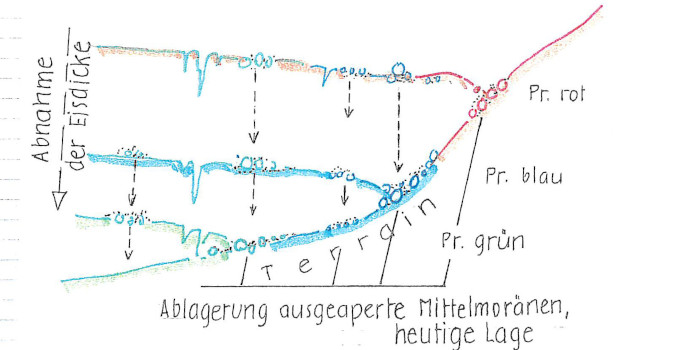 Abnahme
der Eisdicke
Pr. rot
Pr. blau
Pr. grün
Terrain
Ablagerung ausgeaperte Mittelmoränen,
heutige Lage